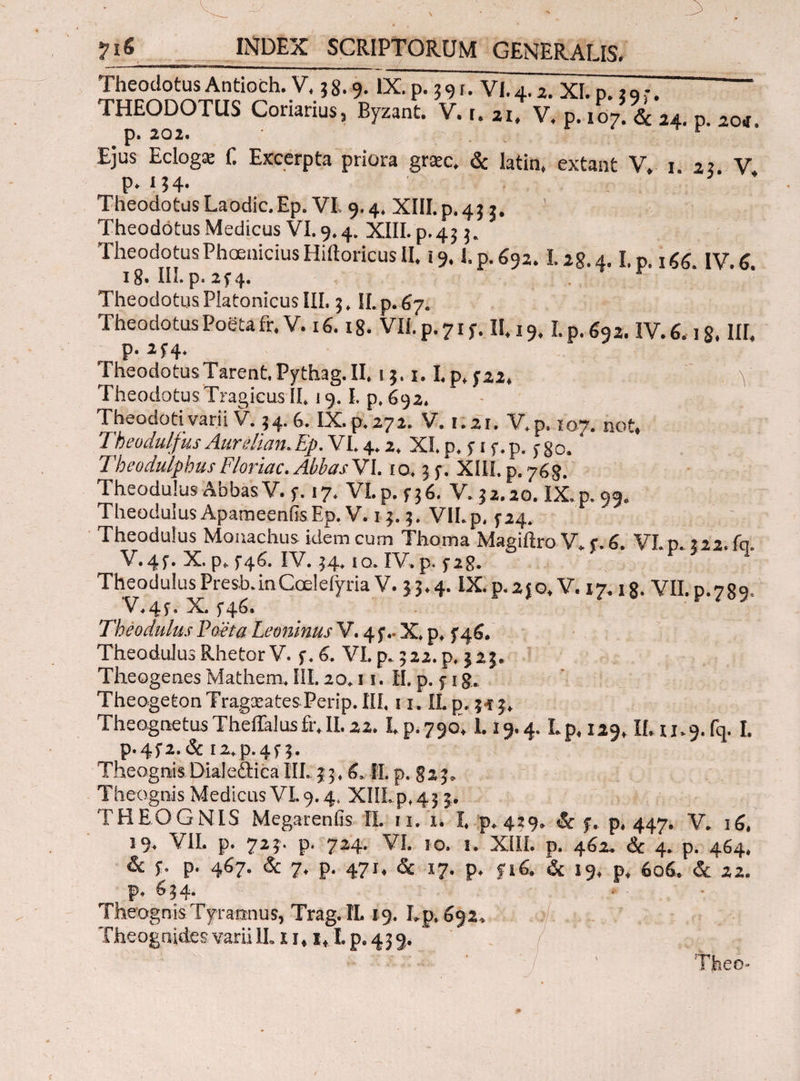 716 INDEX SCRIPTORUM GENERALIS.
Theodotus Antioch. V. 38. 9. IX. p. 391. VI. 4. 2. XI. p. 395.
THEODOTUS Coriarius, Byzant. V. 1. 21. V. p. 107. & 24. p. 205.
p. 202.
Ejus Eclogæ ſ. Excerpta priora græc. & latin. extant V. 1. 23. V.
p. 134.
Theodotus Laodic. Ep. VI. 9. 4. XIII. p. 433.
Theodotus Medicus VI. 9. 4. XIII. p. 433.
Theodotus Phœnicius Hiſtoricus II. 19. I. p. 692. I. 28. 4. I. p. 166. IV. 6.
18. III. p. 254.
Theodotus Platonicus III. 3. II. p. 67.
Theodotus Poëta fr. V. 16. 18. VII. p. 715. II. 19. I. p. 692. IV. 6. 18. III.
p. 254.
Theodotus Tarent. Pythag. II. 13. 1. I. p. 522.
Theodotus Tragicus II. 19. I. p. 692.
Theodoti varii V. 34. 6. IX. p. 272. V. 1. 21. V. p. 107. not.
Theodulfus Aurelian. Ep. VI. 4. 2. XI. p. 515. p. 580.
Theodulphus Floriac. Abbas VI. 10. 35. XIII. p. 768.
Theodulus Abbas V. 5. 17. VI. p. 536. V. 32. 20. IX. p. 99.
Theodulus Apameenſis Ep. V. 13. 3. VII. p. 524.
Theodulus Monachus idem cum Thoma Magiſtro V. 5. 6. VI. p. 322. ſq.
V. 45. X. p. 546. IV. 34. 10. IV. p. 528.
Theodulus Presb. in Cœleſyria V. 33. 4. IX. p. 250. V. 17. 18. VII. p. 789.
V. 45. X. 546.
Theodulus Poëta Leoninus V. 45. X. p. 546.
Theodulus Rhetor V. 5. 6. VI. p. 322. p. 323.
Theogenes Mathem. III. 20. 11. II. p. 518.
Theogeton Tragæates Perip. III. 11. II. p. 313.
Theognetus Theſſalus fr. II. 22. I. p. 790. I. 19. 4. I. p. 129. II. 11. 9. ſq. I.
p. 452. & 12. p. 453.
Theognis Dialectica III. 33. 6. II. p. 823.
Theognis Medicus VI. 9. 4. XIII. p. 433.
THEOGNIS Megarenſis II. 11. 1. I. p. 429. & 5. p. 447. V. 16.
19. VII. p. 723. p. 724. VI. 10. 1. XIII. p. 462. & 4. p. 464.
& 5. p. 467. & 7. p. 471. & 17. p. 516. & 19. p. 606. & 22.
p. 634.
Theognis Tyrannus, Trag. II. 19. I. p. 692.
Theognides varii II. 11. 1. I. p. 439.
Theo-